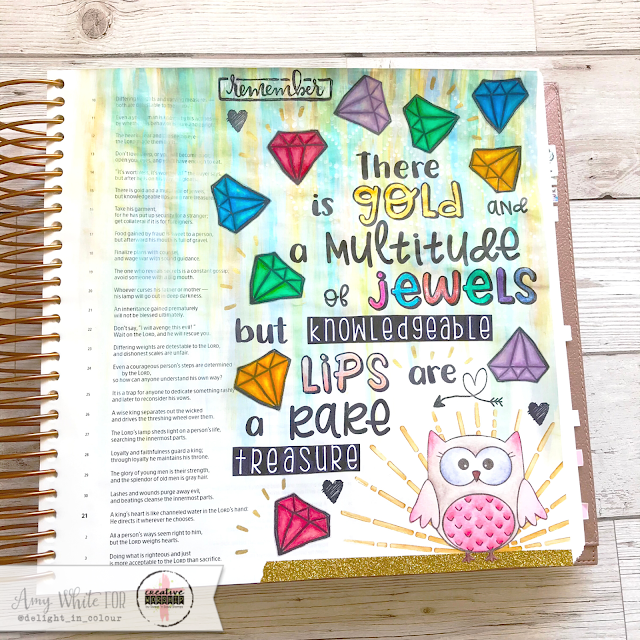 remember
There
is gold and
a multitude
of jewels
but knowledgeable
lips are
a rare
treasure
There is gold and a multitude of jewels,
but knowledgeable lips are a rare treasure.
17
Take his garment,
for he has put up security for a stranger;
get collateral if it is for foreigners.
Food gained by fraud is sweet to a person,
but afterward his mouth is full of gravel.
Finalize plans with counsel,
and wage war with sound guidance.
The one who reveals secrets is a constant gossip;
avoid someone with a big mouth.
20
Whoever curses his father or mother —
his lamp will go out in deep darkness.
21
An inheritance gained prematurely
will not be blessed ultimately.
22
Don't say, "I will avenge this evil!"
Wait on the LORD, and he will rescue you.
23
Differing weights are detestable to the LORD,
and dishonest scales are unfair.
24
Even a courageous person's steps are determined
by the LORD,
so how can anyone understand his own way?
25
It is a trap for anyone to dedicate something rashly
and later to reconsider his vows.
26
A wise king separates out the wicked
and drives the threshing wheel over them.
27
The LORD's lamp sheds light on a person's life,
searching the innermost parts.
28
Loyalty and faithfulness guard a king;
through loyalty he maintains his throne.
29
The glory of young men is their strength,
and the splendor of old men is gray hair.
30
Lashes and wounds purge away evil,
and beatings cleanse the innermost parts.
21
A king's heart is like channeled water in the LORD's hand:
He directs it wherever he chooses.
2
All a person's ways seem right to him,
but the LORD weighs hearts.
3
Doing what is righteous and just
is more acceptable to the LORD than sacrifice.
Amy White FOR
@delight_in_colour
creative